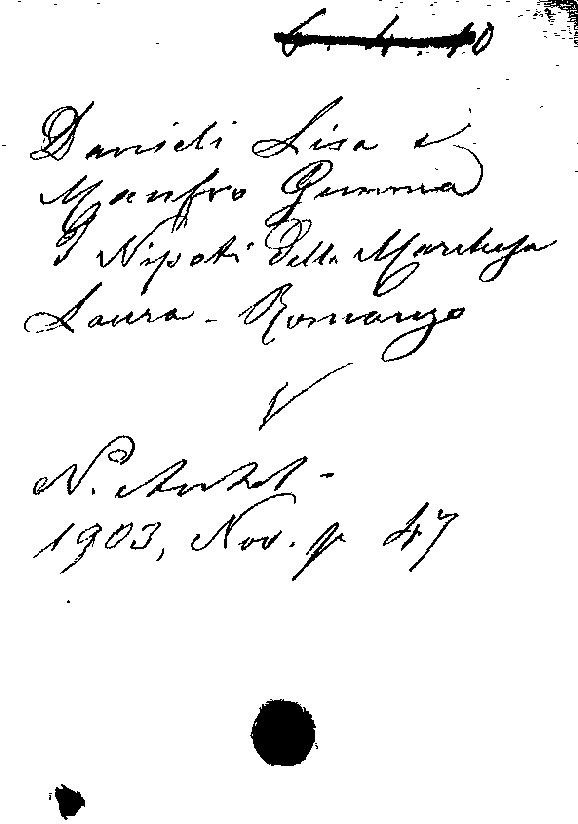 6.4.10
Danieli Lisa e
Manfro Gemma
I Nipoti Della Marchesa
Laura - Romanzo
N. Antol -
1903, Nov. p 47